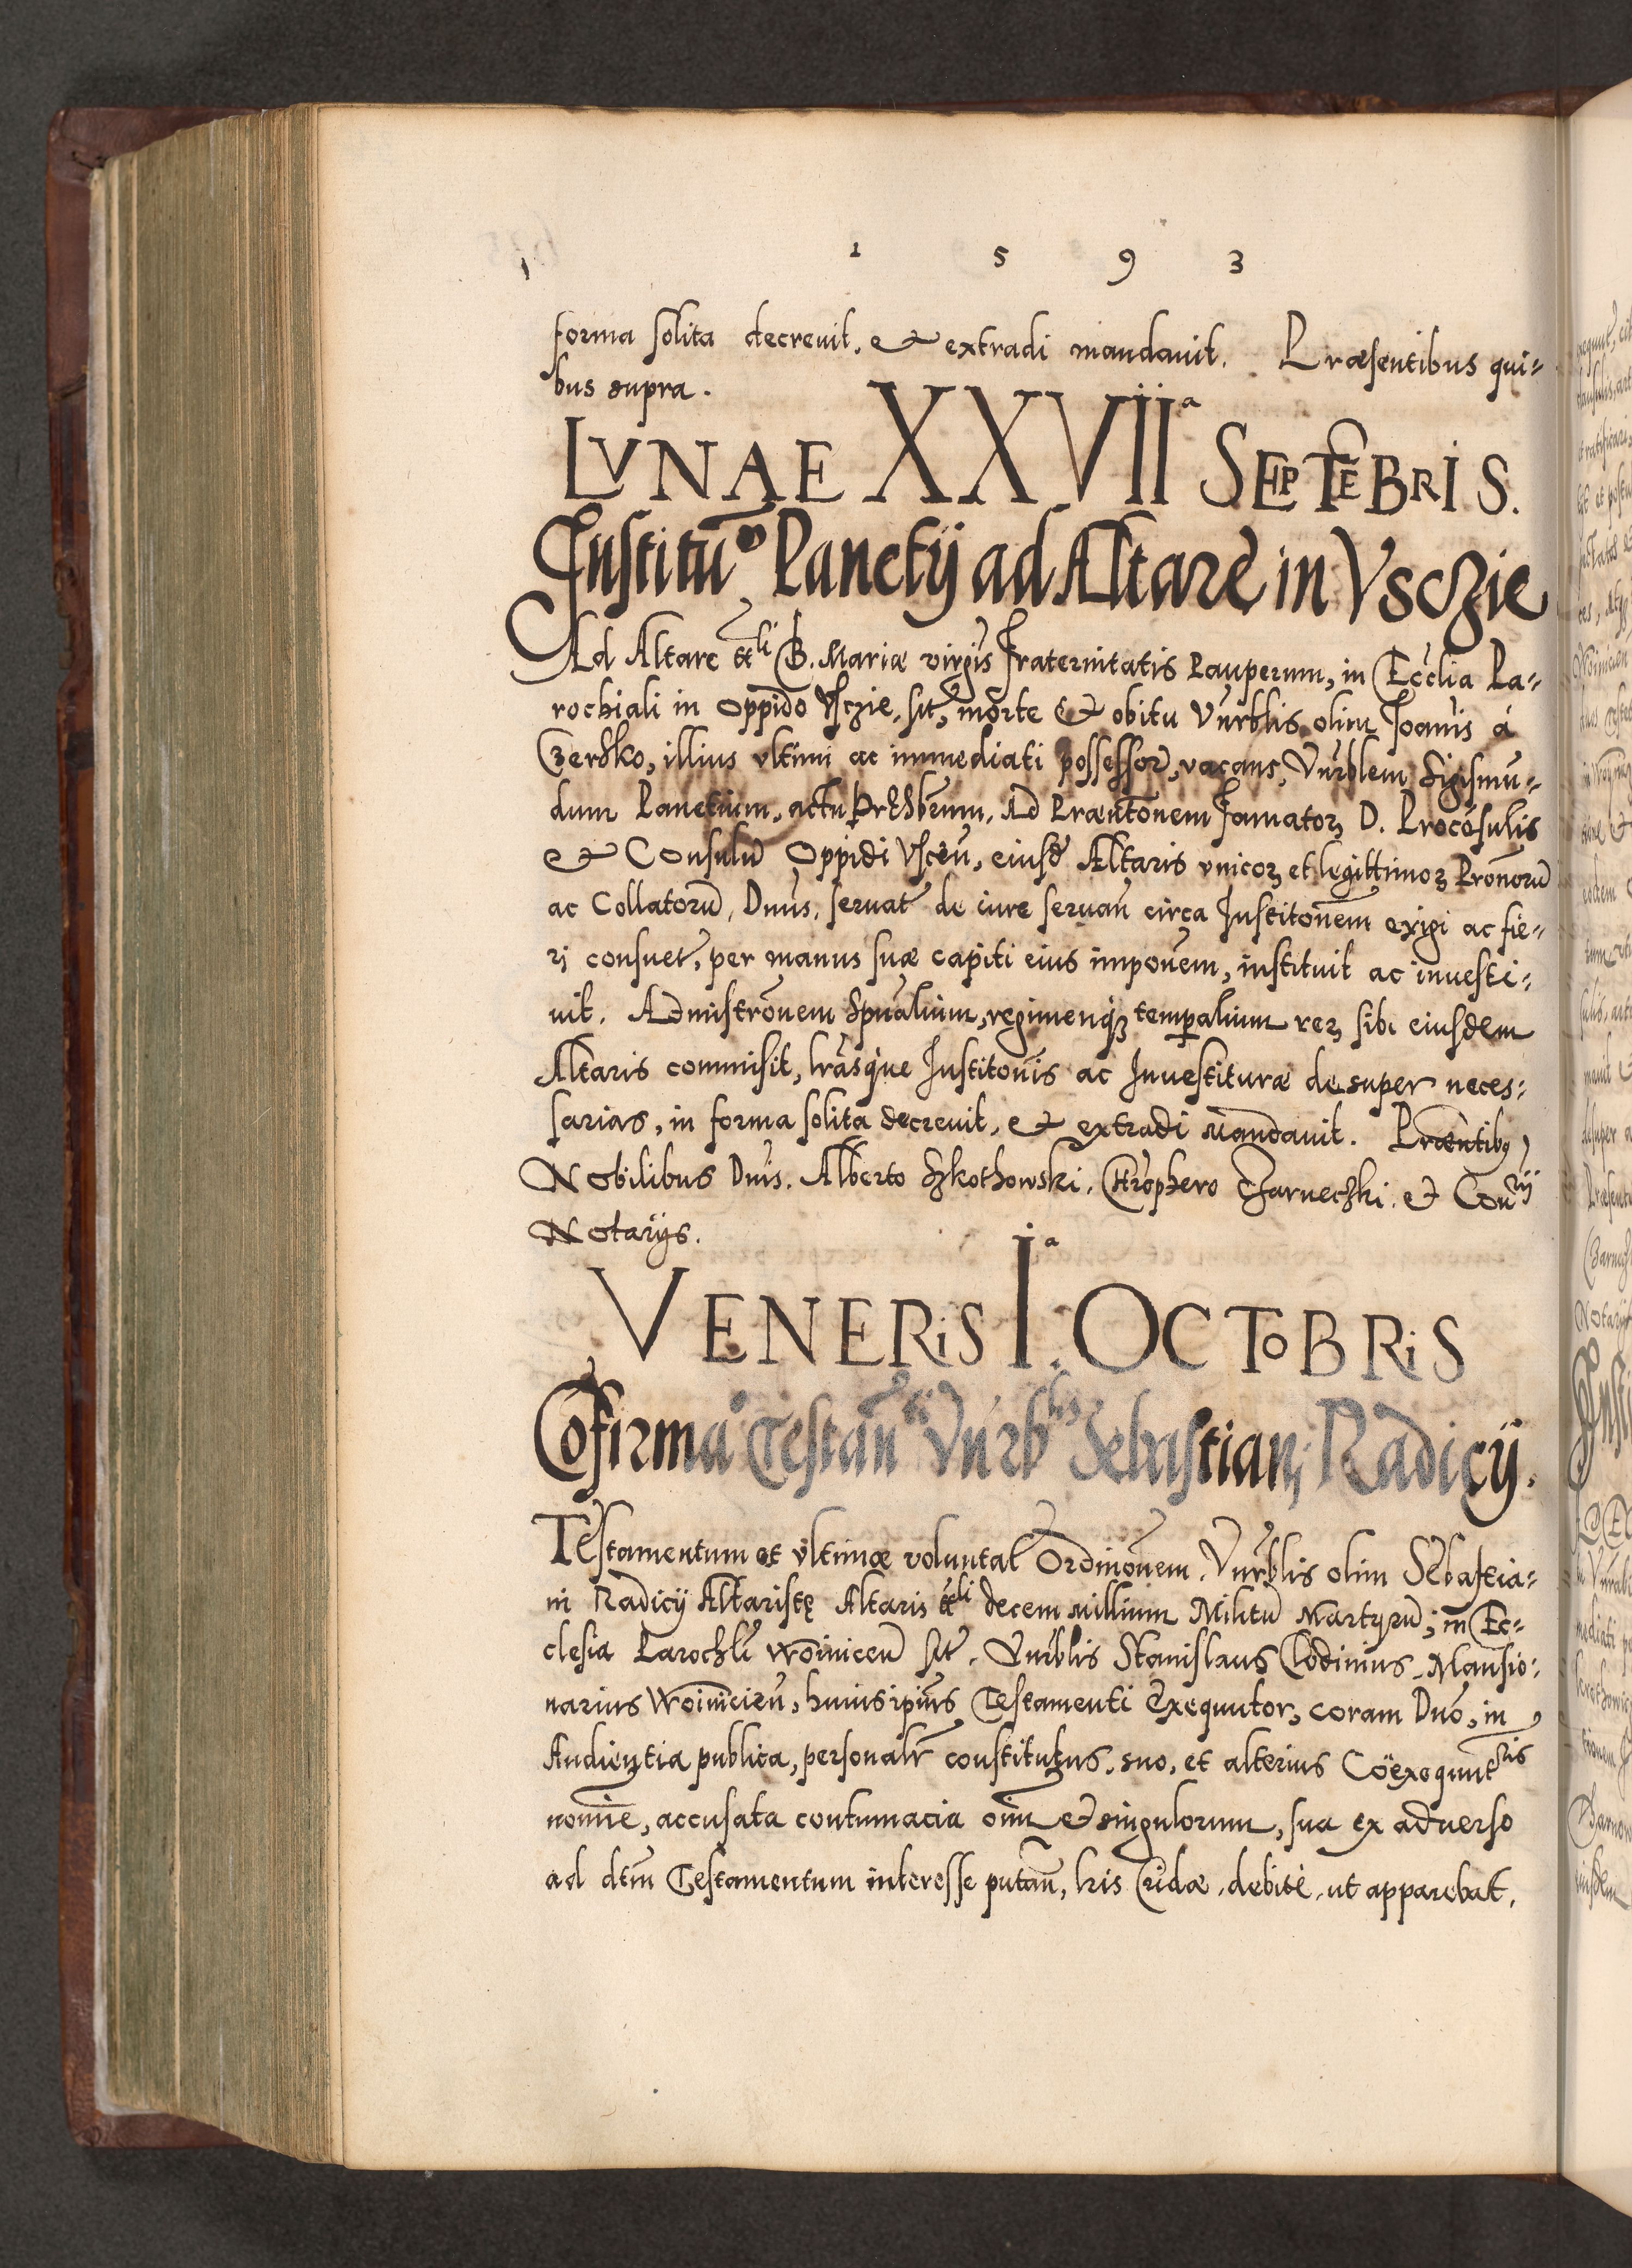 1 5 9 3
forma solita decrevit, et extradi mandavit. Præsentibus qui-
bus supra.
LVNAE XXVIIª SEPTĒBRIS.
Institūo Panetij ad Altare in Vsczie
Ad Altare ttli B. Mariæ virgīs Fraternitatis Pauperum, in Ecclīa Pa-
rochiali in oppido Vsczie, sit, morte et obitu Vnrblis olim Joannis à
Czersko, illius vltimi ac immediati possessor, vacans, Vnrblem Sigismū-
dum Panetium, actu Prēsbrum, Ad Præntōnem Famatorꝝ D. Procōsulis
et Consulū Oppidi Vscēn, eiusd̄ Altaris vnicorꝝ et legittimorꝝ Prōnorū
ac Collatorū, Dnūs, servat̄ de iure servan̄ circa Institōnem exigi ac fie-
rj consuet̄, per manus suæ capiti eius imponēm, instituit ac investi-
vit. Admistrōnem Spnālium, regimenqꝫ temporalium rerꝝ sibi eiusdem
Altaris commisit, lrāsque Institōnis ac Investituræ desuper neces-
sarias, in forma solita decrevit, et extradi mandavit. Præntibꝰ
Nobilibus Dnīs. Alberto Szkothowski, Chrophero Czarneczki. et Conrij
Notarijs.
VENERIS Iª. OCTOBRIS
Cōfirmaº Testan̄ti Vnrblis Sebastianj Radicij.
Testamentum et vltimæ voluntat̄ Ordinōnem. Vnrblis olim Sebastia-
ni Radicij Altaristę Altaris ttli decem millium Militū Martyrū, in Ec-
clesia Parochli Woinicen̄ sit̄. Vnrblis Stanislaus Clodinius, Mansio-
narius Woinicien̄, huius ipius Testamenti Exequutor, coram Dnō, in
Audientia publica, personalr̄ constitutus, suo, et alterius Coëxequutris
nomīe, accusata contumacia oim̄ et singulorum, sua ex adverso
ad dtm̄ Testamentum interesse putan̄, lris Cridæ, debitè, ut apparebat,